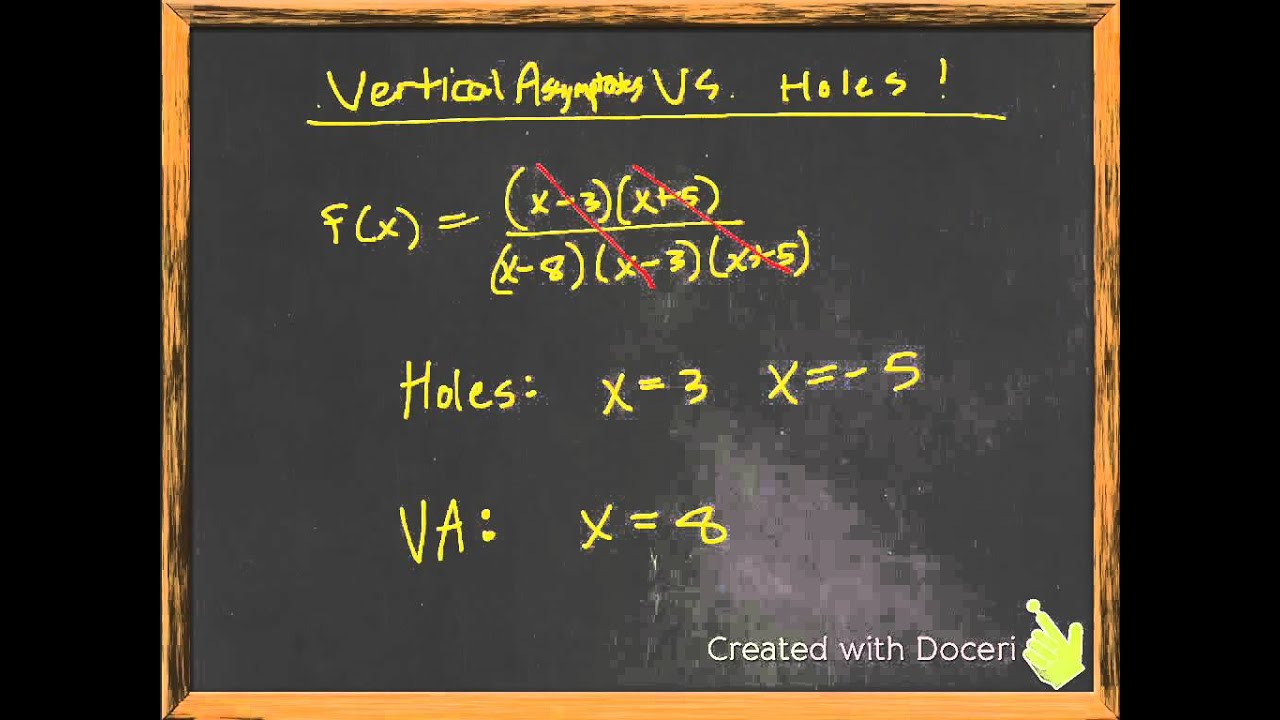 Vertical Asymptotes VS. Holes!
f(x) = (x-3)(x+5)
(x-8)(x-3)(x+5)
Holes: x=3 x=-5
VA: x=8
Created with Doceri